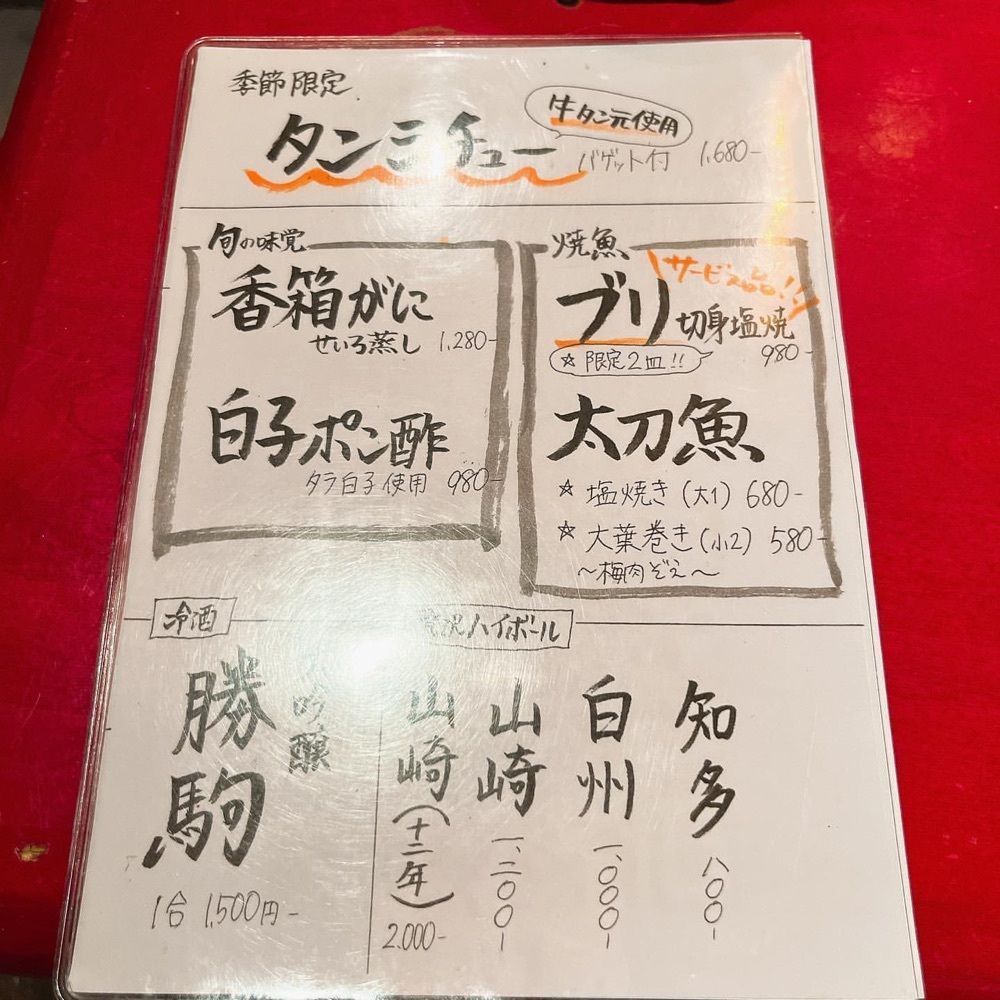 季節限定
タンシチュー
牛タン元使用
バゲット付 1,680-
旬の味覚
香箱がに
せいろ蒸し 1,280-
白子ポン酢
タラ白子使用 980-
焼魚
サービス品!!
ブリ切身塩焼
980-
☆限定2皿!!
太刀魚
☆ 塩焼き(大1) 680-
☆ 大葉巻き(小2) 580-
〜梅肉ぞえ〜
冷酒
勝駒
吟醸
1合 1,500円-
ハイボール
山崎(十二年) 2,000-
山崎 一、二〇〇-
白州 一、〇〇〇-
知多 八〇〇-